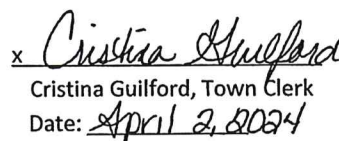 x Cristina Guilford
Cristina Guilford, Town Clerk
Date: April 2, 2024